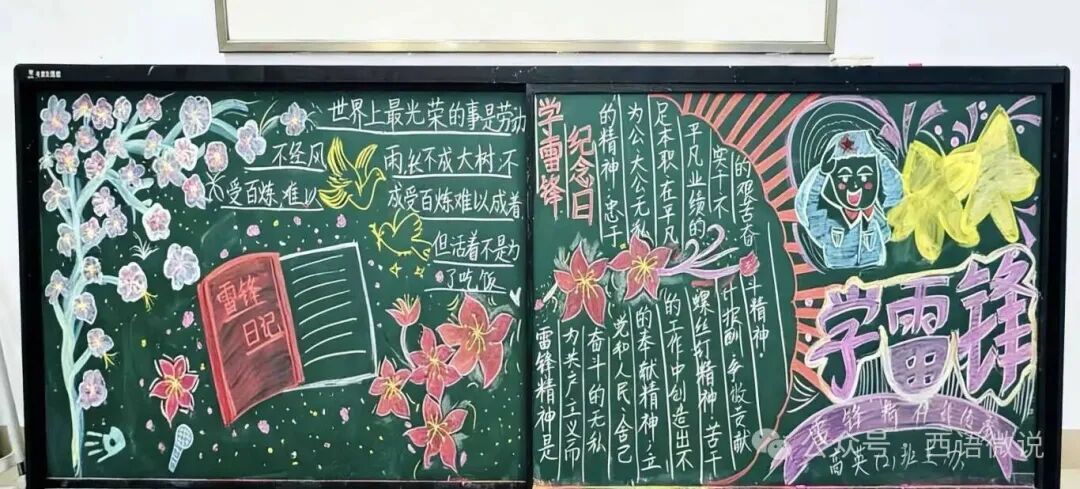 世界上最光荣的事是劳动
不经风
雨长不成大树:不
受百炼难以
成受百炼难以成着
但活着不是为
了吃饭
雷锋
日记
学雷锋
纪念日
雷锋精神是
为共产主义而
奋斗的无私
党和人民,舍己
的奉献精神!立
的工作中创造出不
螺丝钉精神 苦干
计报酬
收贡献
斗精神!
的艰苦奋
实干不
平凡业绩的
足本职在平凡
为公大公无私
的精神!忠于
学雷锋
雷锋
班主办
公众号·西语微说